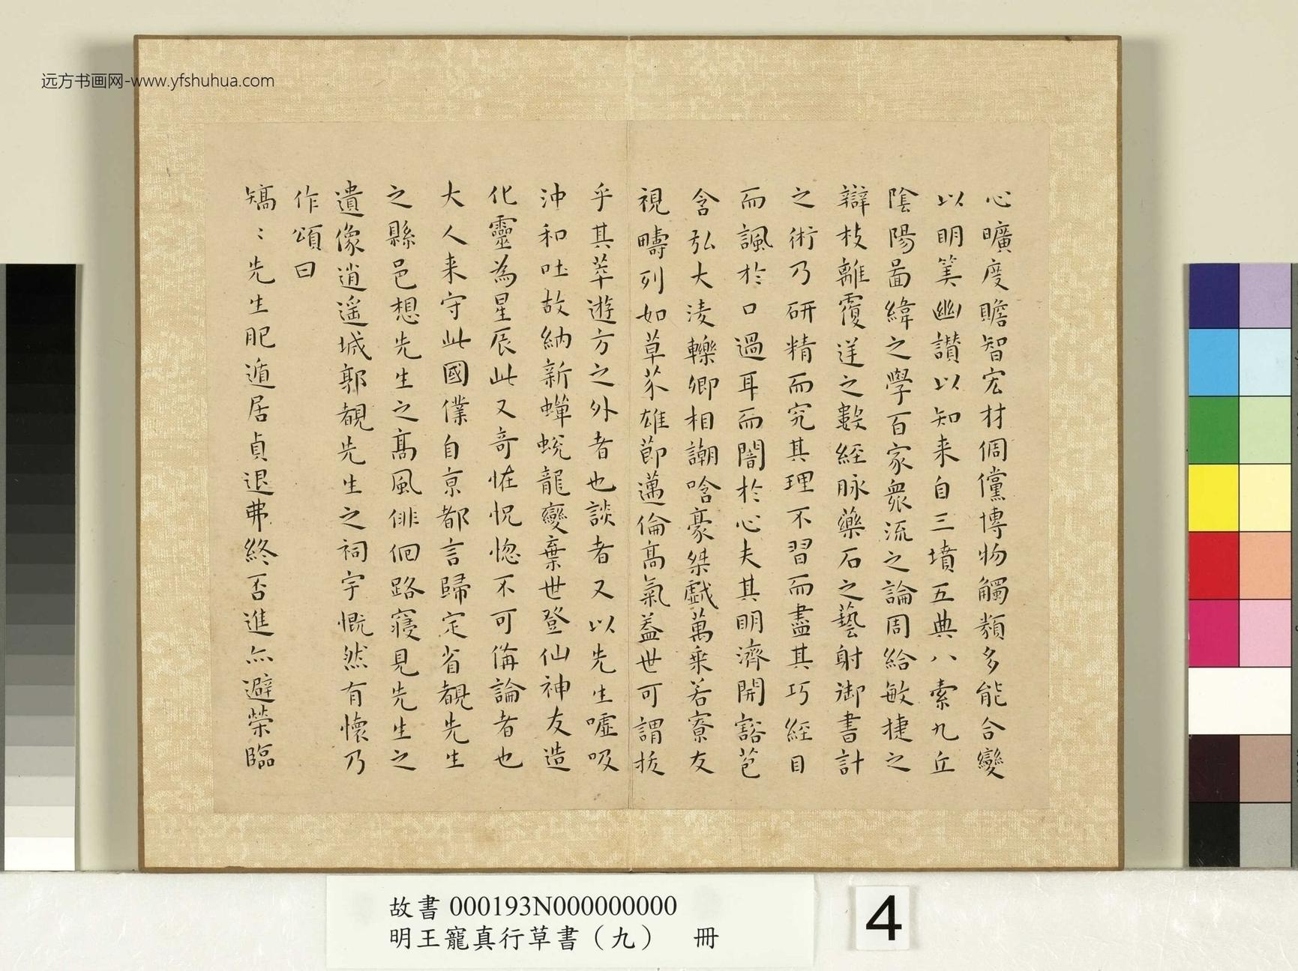 远方书画网-www.yfshuhua.com
心曠度贍智宏材倜儻博物觸類多能合變
以明筭幽讃以知来自三墳五典八索九丘
陰陽啚緯之學百家衆流之論周給敏捷之
辯枝離覆逆之數經脉藥石之藝射御書計
之術乃研精而究其理不習而盡其巧經目
而諷於口過耳而闇於心夫其明濟開豁苞
含弘大淩轢卿相謿哈豪桀戲萬乗若寮友
視疇列如草芥雄莭邁倫髙氣葢世可謂拔
乎其萃遊方之外者也談者又以先生嘘吸
沖和吐故納新蟬蛻龍變棄世登仙神友造
化靈為星辰此又竒恠怳惚不可俻論者也
大人来守此國僕自京都言歸定省覩先生
之縣邑想先生之髙風俳佪路寢見先生之
遺像逍遥城郭覩先生之祠宇慨然有懷乃
作頌曰
矯〻先生肥遁居貞退弗終否進亦避榮臨
故書 000193N000000000
明王寵真行草書（九） 冊
4